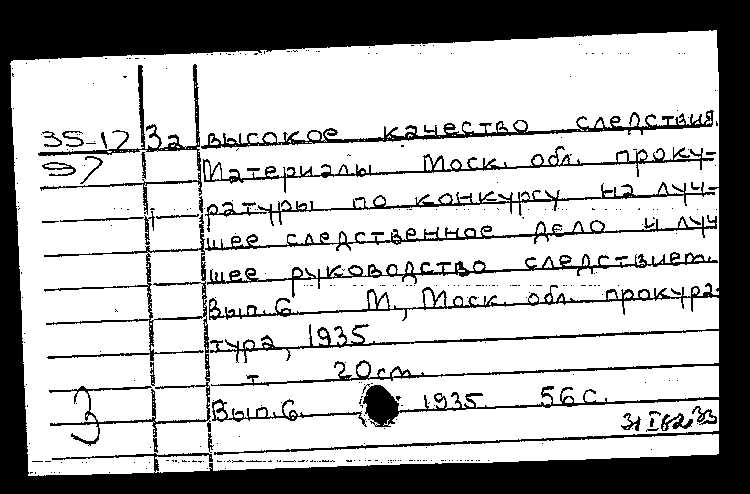 35-17 За высокое качество следствия.
97 Материалы Моск. обл. проку-
ратуры по конкурсу на луч-
шее следственное дело и луч
шее руководство следствием.
Вып. 6 М., Моск. обл. прокура-
тура, 1935
т. 20 см.
З Вып. 6. 1935. 56 с.